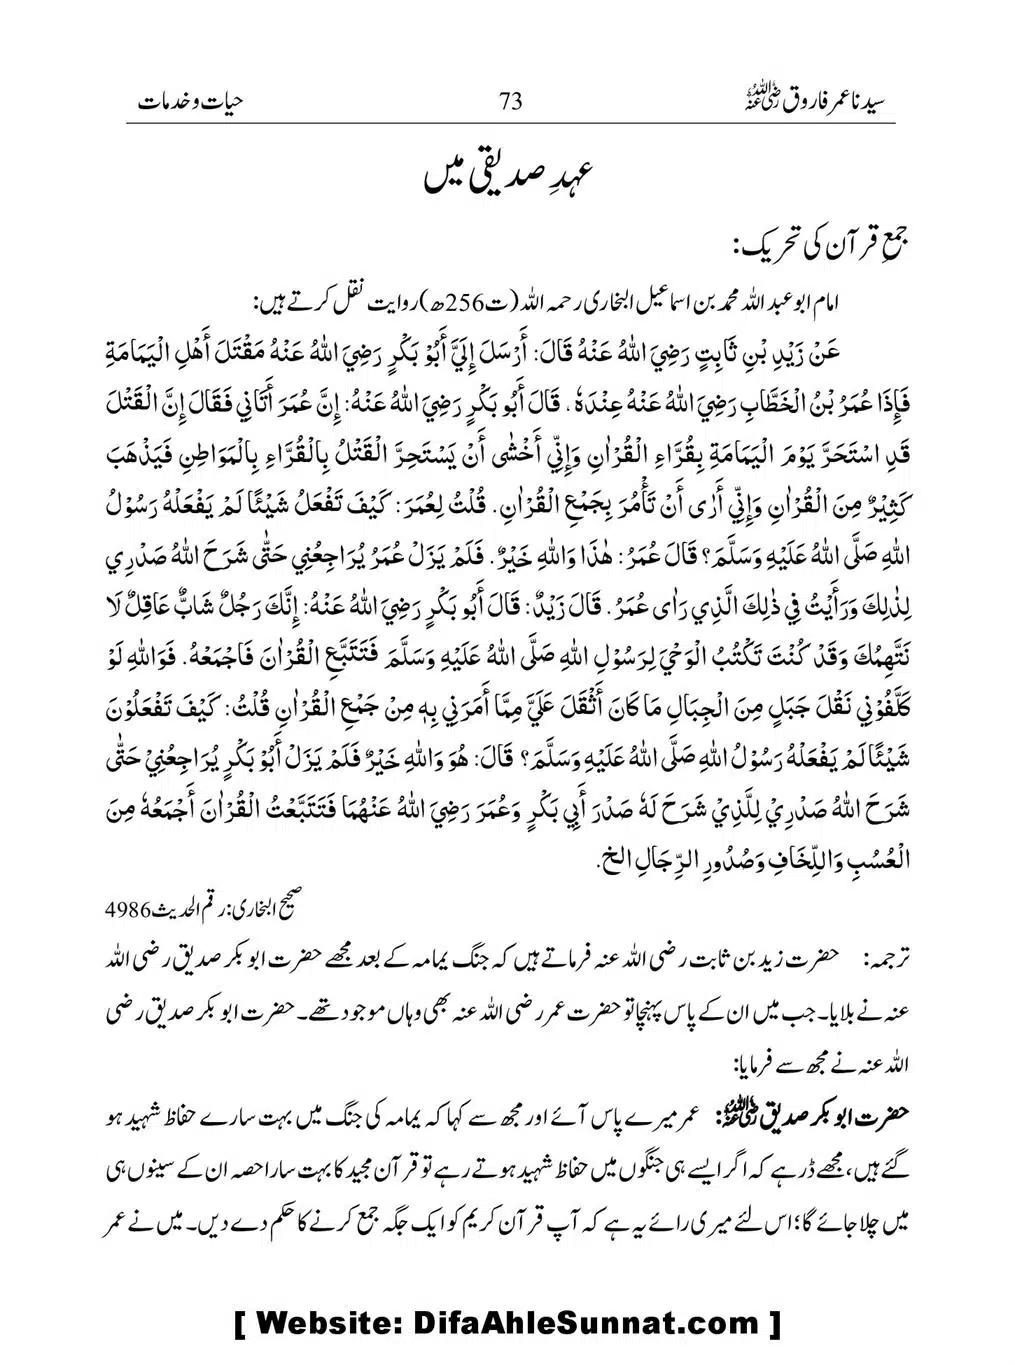 سیدنا عمر فاروق رضی اللہ عنہ 73 حیات و خدمات
عہدِ صدیقی میں
جمعِ قرآن کی تحریک:
امام ابو عبد اللہ محمد بن اسماعیل البخاری رحمہ اللہ (ت256ھ) روایت نقل کرتے ہیں:
عَنْ زَيْدِ بْنِ ثَابِتٍ رَضِيَ اللهُ عَنْهُ قَالَ: أَرْسَلَ إِلَيَّ أَبُوْ بَكْرٍ رَضِيَ اللهُ عَنْهُ مَقْتَلَ أَهْلِ الْيَمَامَةِ
فَإِذَا عُمَرُ بْنُ الْخَطَّابِ رَضِيَ اللهُ عَنْهُ عِنْدَهٗ، قَالَ أَبُو بَكْرٍ رَضِيَ اللهُ عَنْهُ: إِنَّ عُمَرَ أَتَانِي فَقَالَ إِنَّ الْقَتْلَ
قَدِ اسْتَحَرَّ يَوْمَ الْيَمَامَةِ بِقُرَّاءِ الْقُرْاٰنِ وَإِنِّي أَخْشٰى أَنْ يَسْتَحِرَّ الْقَتْلُ بِالْقُرَّاءِ بِالْمَوَاطِنِ فَيَذْهَبَ
كَثِيْرٌ مِنَ الْقُرْاٰنِ وَإِنِّي أَرٰى أَنْ تَأْمُرَ بِجَمْعِ الْقُرْاٰنِ. قُلْتُ لِعُمَرَ: كَيْفَ تَفْعَلُ شَيْئًا لَمْ يَفْعَلْهُ رَسُوْلُ
اللهِ صَلَّى اللهُ عَلَيْهِ وَسَلَّمَ؟ قَالَ عُمَرُ: هٰذَا وَاللهِ خَيْرٌ. فَلَمْ يَزَلْ عُمَرُ يُرَاجِعُنِي حَتّٰى شَرَحَ اللهُ صَدْرِي
لِذٰلِكَ وَرَأَيْتُ فِي ذٰلِكَ الَّذِي رَاٰى عُمَرُ. قَالَ زَيْدٌ: قَالَ أَبُو بَكْرٍ رَضِيَ اللهُ عَنْهُ: إِنَّكَ رَجُلٌ شَابٌّ عَاقِلٌ لَا
نَتَّهِمُكَ وَقَدْ كُنْتَ تَكْتُبُ الْوَحْيَ لِرَسُوْلِ اللهِ صَلَّى اللهُ عَلَيْهِ وَسَلَّمَ فَتَتَبَّعِ الْقُرْاٰنَ فَاجْمَعْهُ. فَوَاللهِ لَوْ
كَلَّفُوْنِي نَقْلَ جَبَلٍ مِنَ الْجِبَالِ مَا كَانَ أَثْقَلَ عَلَيَّ مِمَّا أَمَرَنِي بِهٖ مِنْ جَمْعِ الْقُرْاٰنِ قُلْتُ: كَيْفَ تَفْعَلُوْنَ
شَيْئًا لَمْ يَفْعَلْهُ رَسُوْلُ اللهِ صَلَّى اللهُ عَلَيْهِ وَسَلَّمَ؟ قَالَ: هُوَ وَاللهِ خَيْرٌ فَلَمْ يَزَلْ أَبُوْ بَكْرٍ يُرَاجِعُنِيْ حَتّٰى
شَرَحَ اللهُ صَدْرِيْ لِلَّذِيْ شَرَحَ لَهٗ صَدْرَ أَبِي بَكْرٍ وَعُمَرَ رَضِيَ اللهُ عَنْهُمَا فَتَتَبَّعْتُ الْقُرْاٰنَ أَجْمَعُهٗ مِنَ
الْعُسُبِ وَاللِّخَافِ وَصُدُورِ الرِّجَالِ الخ.
صحیح البخاری: رقم الحدیث 4986
ترجمہ: حضرت زید بن ثابت رضی اللہ عنہ فرماتے ہیں کہ جنگ یمامہ کے بعد مجھے حضرت ابو بکر صدیق رضی اللہ
عنہ نے بلایا۔ جب میں ان کے پاس پہنچا تو حضرت عمر رضی اللہ عنہ بھی وہاں موجود تھے۔ حضرت ابو بکر صدیق رضی
اللہ عنہ نے مجھ سے فرمایا:
حضرت ابو بکر صدیق رضی اللہ عنہ: عمر میرے پاس آئے اور مجھ سے کہا کہ یمامہ کی جنگ میں بہت سارے حفاظ شہید ہو
گئے ہیں، مجھے ڈر ہے کہ اگر ایسے ہی جنگوں میں حفاظ شہید ہوتے رہے تو قرآن مجید کا بہت سارا حصہ ان کے سینوں ہی
میں چلا جائے گا؛ اس لئے میری رائے یہ ہے کہ آپ قرآن کریم کو ایک جگہ جمع کرنے کا حکم دے دیں۔ میں نے عمر
[ Website: DifaAhleSunnat.com ]